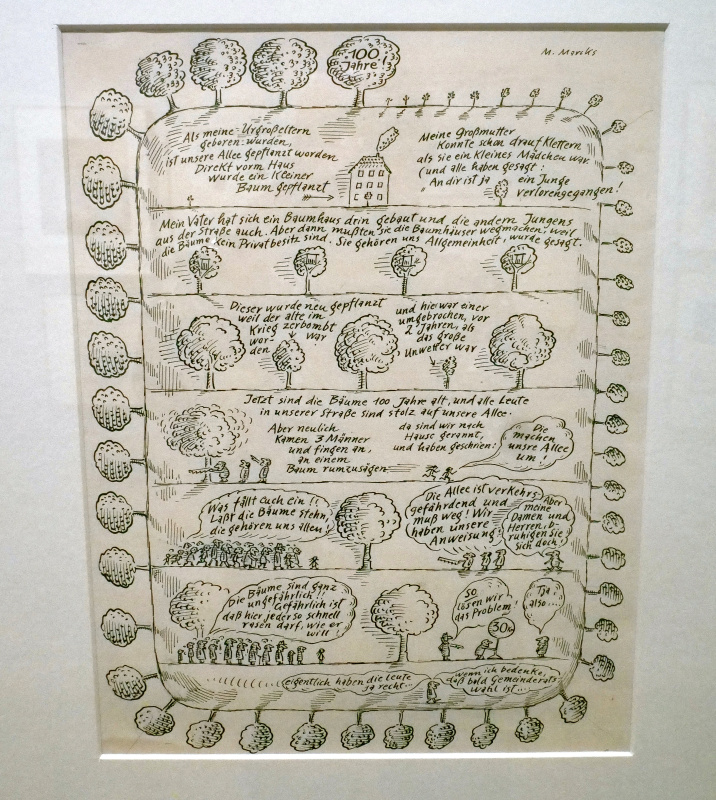 M. Marcks
100
Jahre!
Als meine Urgroßeltern
geboren wurden,
ist unsere Allee gepflanzt worden
Direkt vorm Haus
wurde ein kleiner
Baum gepflanzt
Meine Großmutter
konnte schon drauf klettern
als sie ein kleines Mädchen war
(und alle haben gesagt:
An dir ist ja ein Junge
verlorengegangen!
Mein Vater hat sich ein Baumhaus drin gebaut und die andern Jungens
aus der Straße auch. Aber dann mußten sie die Baumhäuser wegmachen, weil
die Bäume kein Privatbesitz sind. Sie gehören uns Allgemeinheit, wurde gesagt.
Dieser wurde neu gepflanzt
weil der alte im
Krieg zerbombt
wor- war
den
und hier war einer
umgebrochen, vor
2 Jahren, als
das große
Unwetter war
Jetzt sind die Bäume 100 Jahre alt, und alle Leute
in unserer Straße sind stolz auf unsere Allee.
Aber neulich
kamen 3 Männer
und fingen an,
an einem
Baum rumzusägen
da sind wir nach
Hause gerannt,
und haben geschrien:
Die
machen
unsre Allee
um!
Was fällt euch ein!!
Laßt die Bäume stehn,
die gehören uns allen!
Die Allee ist verkehrs
gefährdend und
muß weg! Wir
haben unsere
Anweisung!
Aber
meine
Damen und
Herren, b-
ruhigen Sie
sich doch!
Die Bäume sind ganz
ungefährlich!!
Gefährlich ist
daß hier jeder so schnell
rasen darf, wie er
will
So
lösen wir
das Problem!
30
Tja
also...
eigentlich haben die Leute
ja recht...
wenn ich bedenke,
daß bald Gemeinderats
wahl ist...